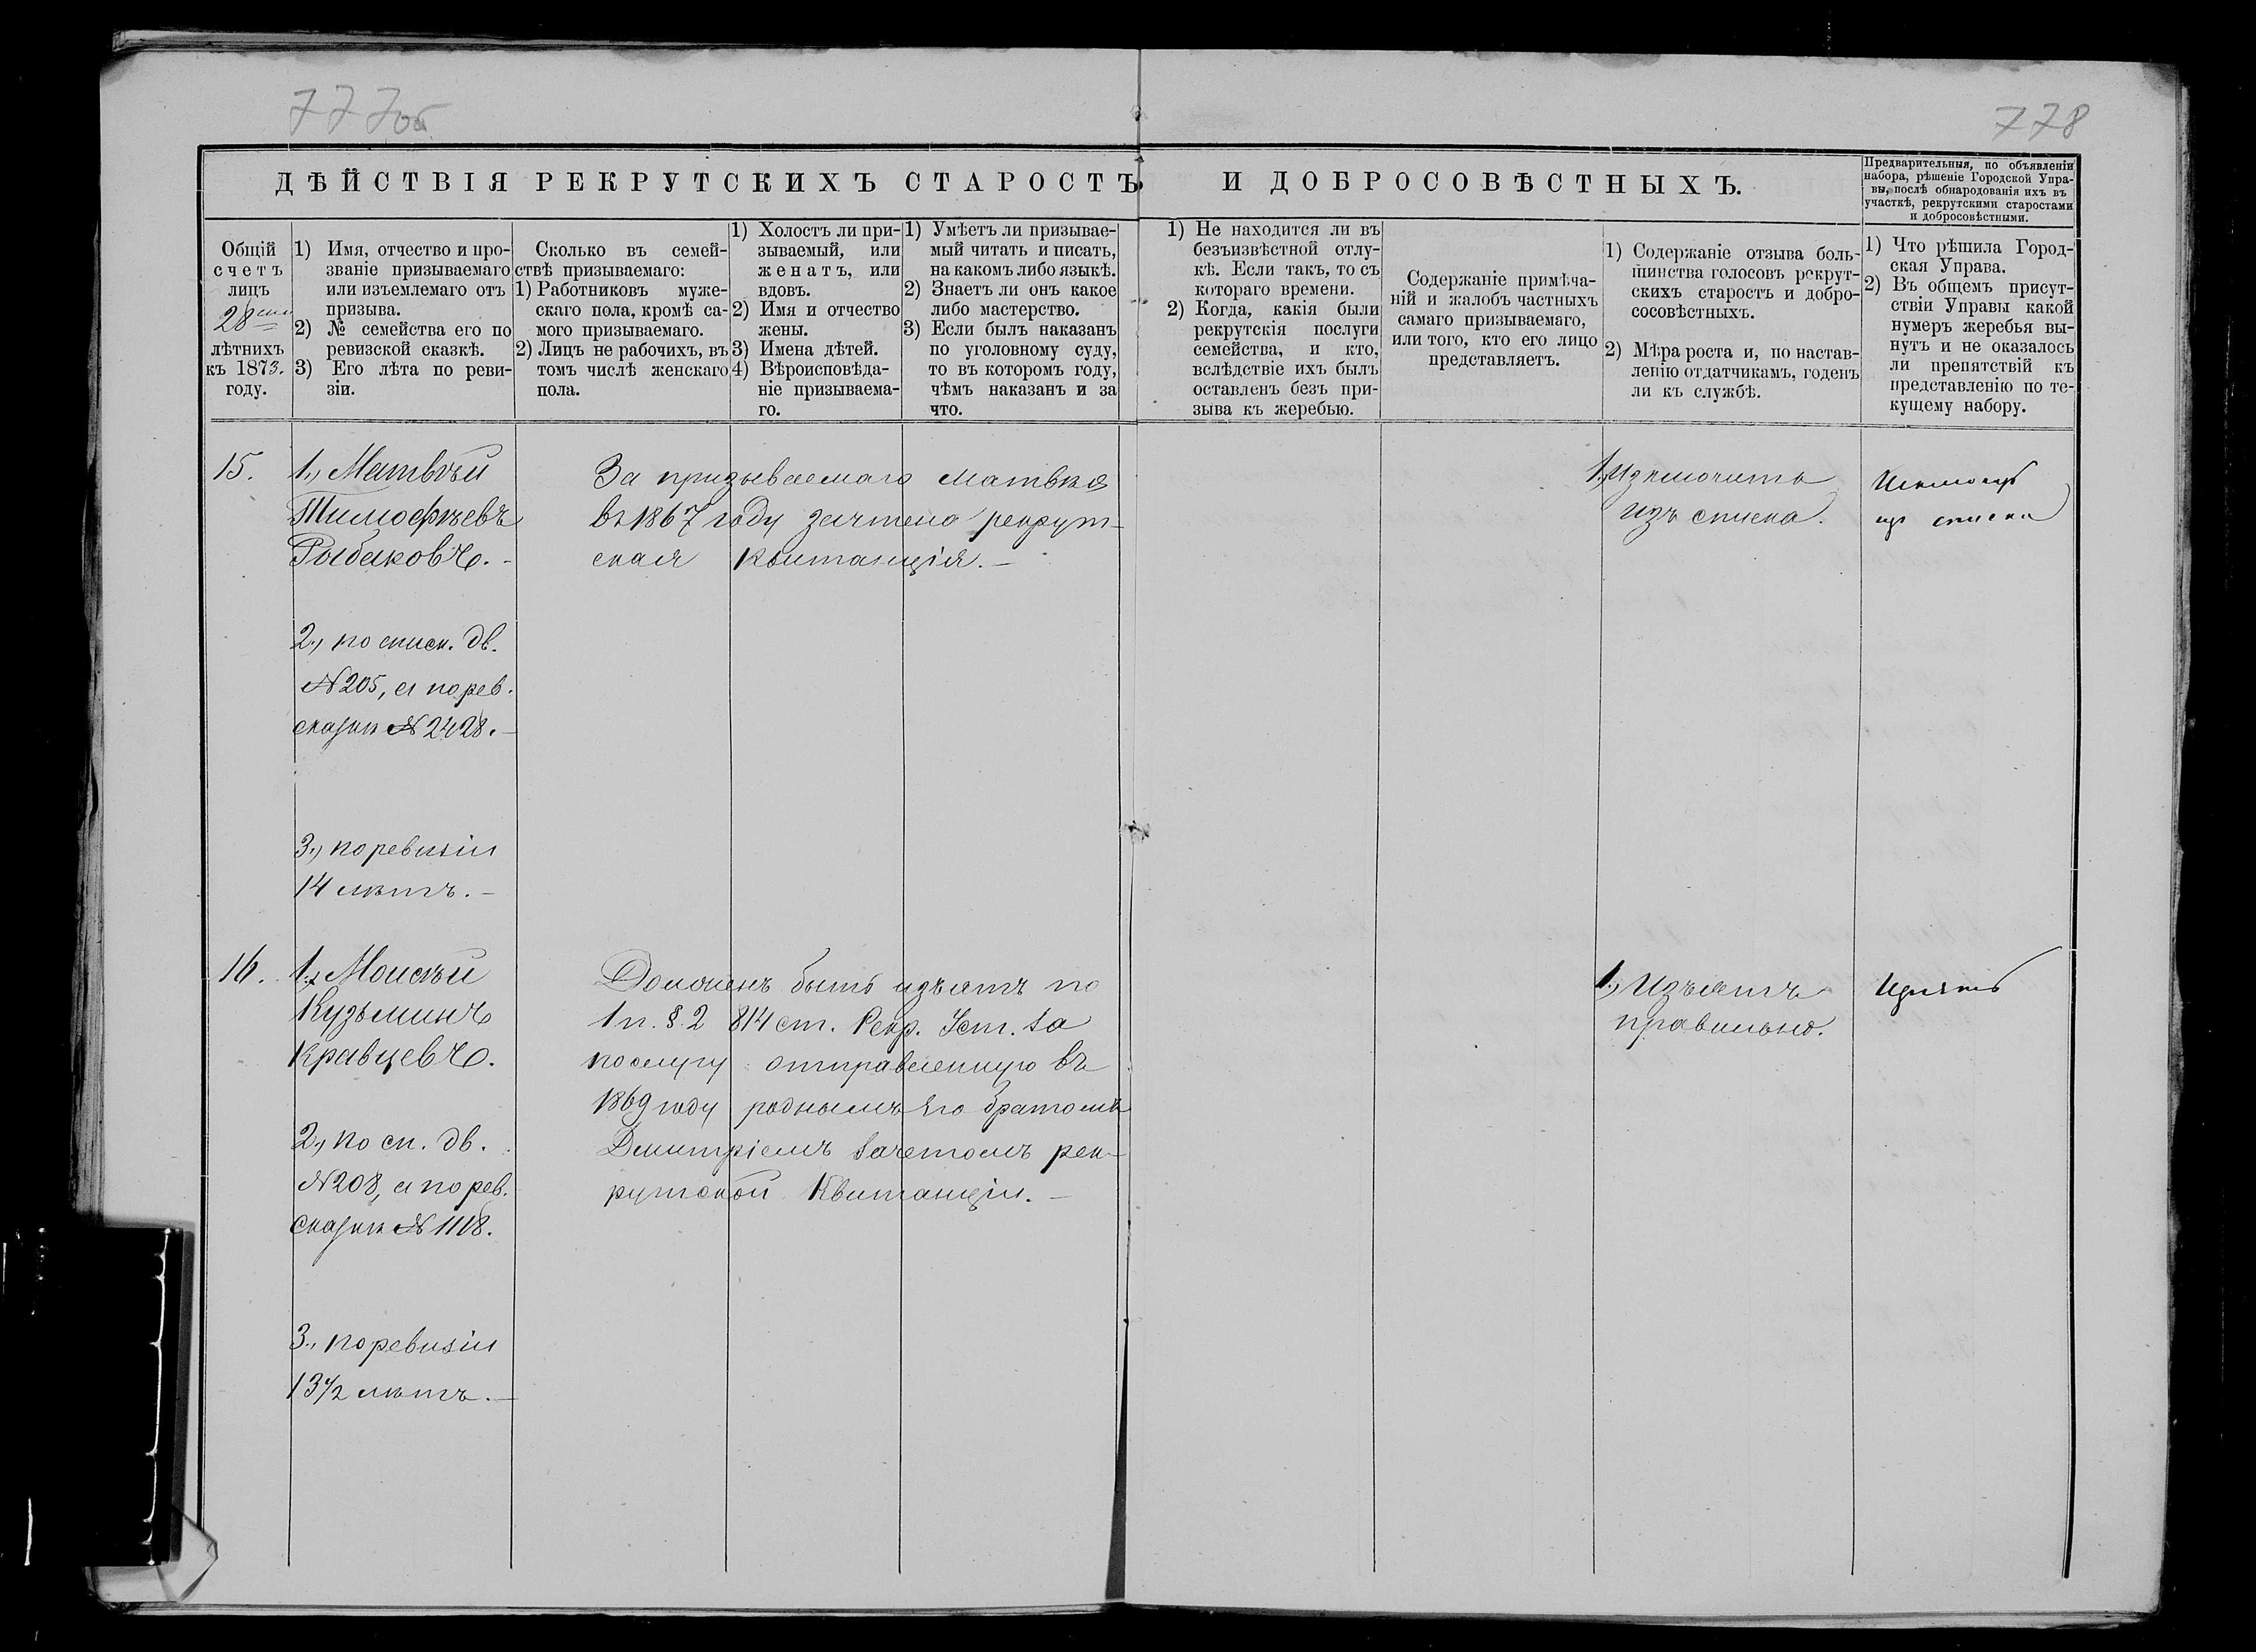 777об
778
ДѢЙСТВІЯ РЕКРУТСКИХЪ СТАРОСТЪ И ДОБРОСОВѢСТНЫХЪ.
Предварительныя, по объявленіи
набора, рѣшеніе Городской Упра-
вы, послѣ обнародованія ихъ въ
участкѣ, рекрутскими старостами
и добросовѣстными.
Общій
счетъ
лицъ
28ми
лѣтнихъ
къ 1873.
году.
1) Имя, отчество и про-
званіе призываемаго
или изъемлемаго отъ
призыва.
2) № семейства его по
ревизской сказкѣ.
3) Его лѣта по реви-
зіи.
Сколько въ семей-
ствѣ призываемаго:
1) Работниковъ муже-
скаго пола, кромѣ са-
мого призываемаго.
2) Лицъ не рабочихъ, въ
томъ числѣ женскаго
пола.
1) Холостъ ли при-
зываемый, или
женатъ, или
вдовъ.
2) Имя и отчество
жены.
3) Имена дѣтей.
4) Вѣроисповѣда-
ніе призываема-
го.
1) Умѣетъ ли призывае-
мый читать и писать,
на какомъ либо языкѣ.
2) Знаетъ ли онъ какое
либо мастерство.
3) Если былъ наказанъ
по уголовному суду,
то въ которомъ году,
чѣмъ наказанъ и за
что.
1) Не находится ли въ
безъизвѣстной отлу-
кѣ. Если такъ, то съ
котораго времени.
2) Когда, какія были
рекрутскія послуги
семейства, и кто,
вслѣдствіе ихъ былъ
оставленъ безъ при-
зыва къ жеребью.
Содержаніе примѣча-
ній и жалобъ частныхъ
самаго призываемаго,
или того, кто его лицо
представляетъ.
1) Содержаніе отзыва боль-
шинства голосовъ рекрут-
скихъ старостъ и добро-
сосовѣстныхъ.
2) Мѣра роста и, по настав-
ленію отдатчикамъ, годенъ
ли къ службѣ.
1) Что рѣшила Город-
ская Управа.
2) Въ общемъ присут-
ствіи Управы какой
нумеръ жеребья вы-
нутъ и не оказалось
ли препятствій къ
представленію по те-
кущему набору.
15.
1., Матвѣй
Тимофѣевъ
Рыбаковъ. -
2., по списк. дв.
№ 205, а по рев.
сказкѣ № 2428. -
3., по ревизіи
14 лѣтъ. -
За призываемаго Матвѣя
въ 1867 году зачтена рекрут-
ская квитанція. -
1., Изключить
изъ списка.
Исключ
из списка
16.
1., Моисѣй
Кузьминъ
Кравцевъ.
2., по сп. дв.
№ 208, а по рев.
сказкѣ № 1118.
3., по ревизіи
13 1/2 лѣтъ. -
Долженъ быть изъятъ по
1 п. §. 2 814 ст. Рекр. Уст. за
послугу отправленную въ
1869 году роднымъ его братомъ
Дмитріемъ зачетомъ рек-
рутской квитанціи. -
1., Изъятъ
правильно.
Изъятъ